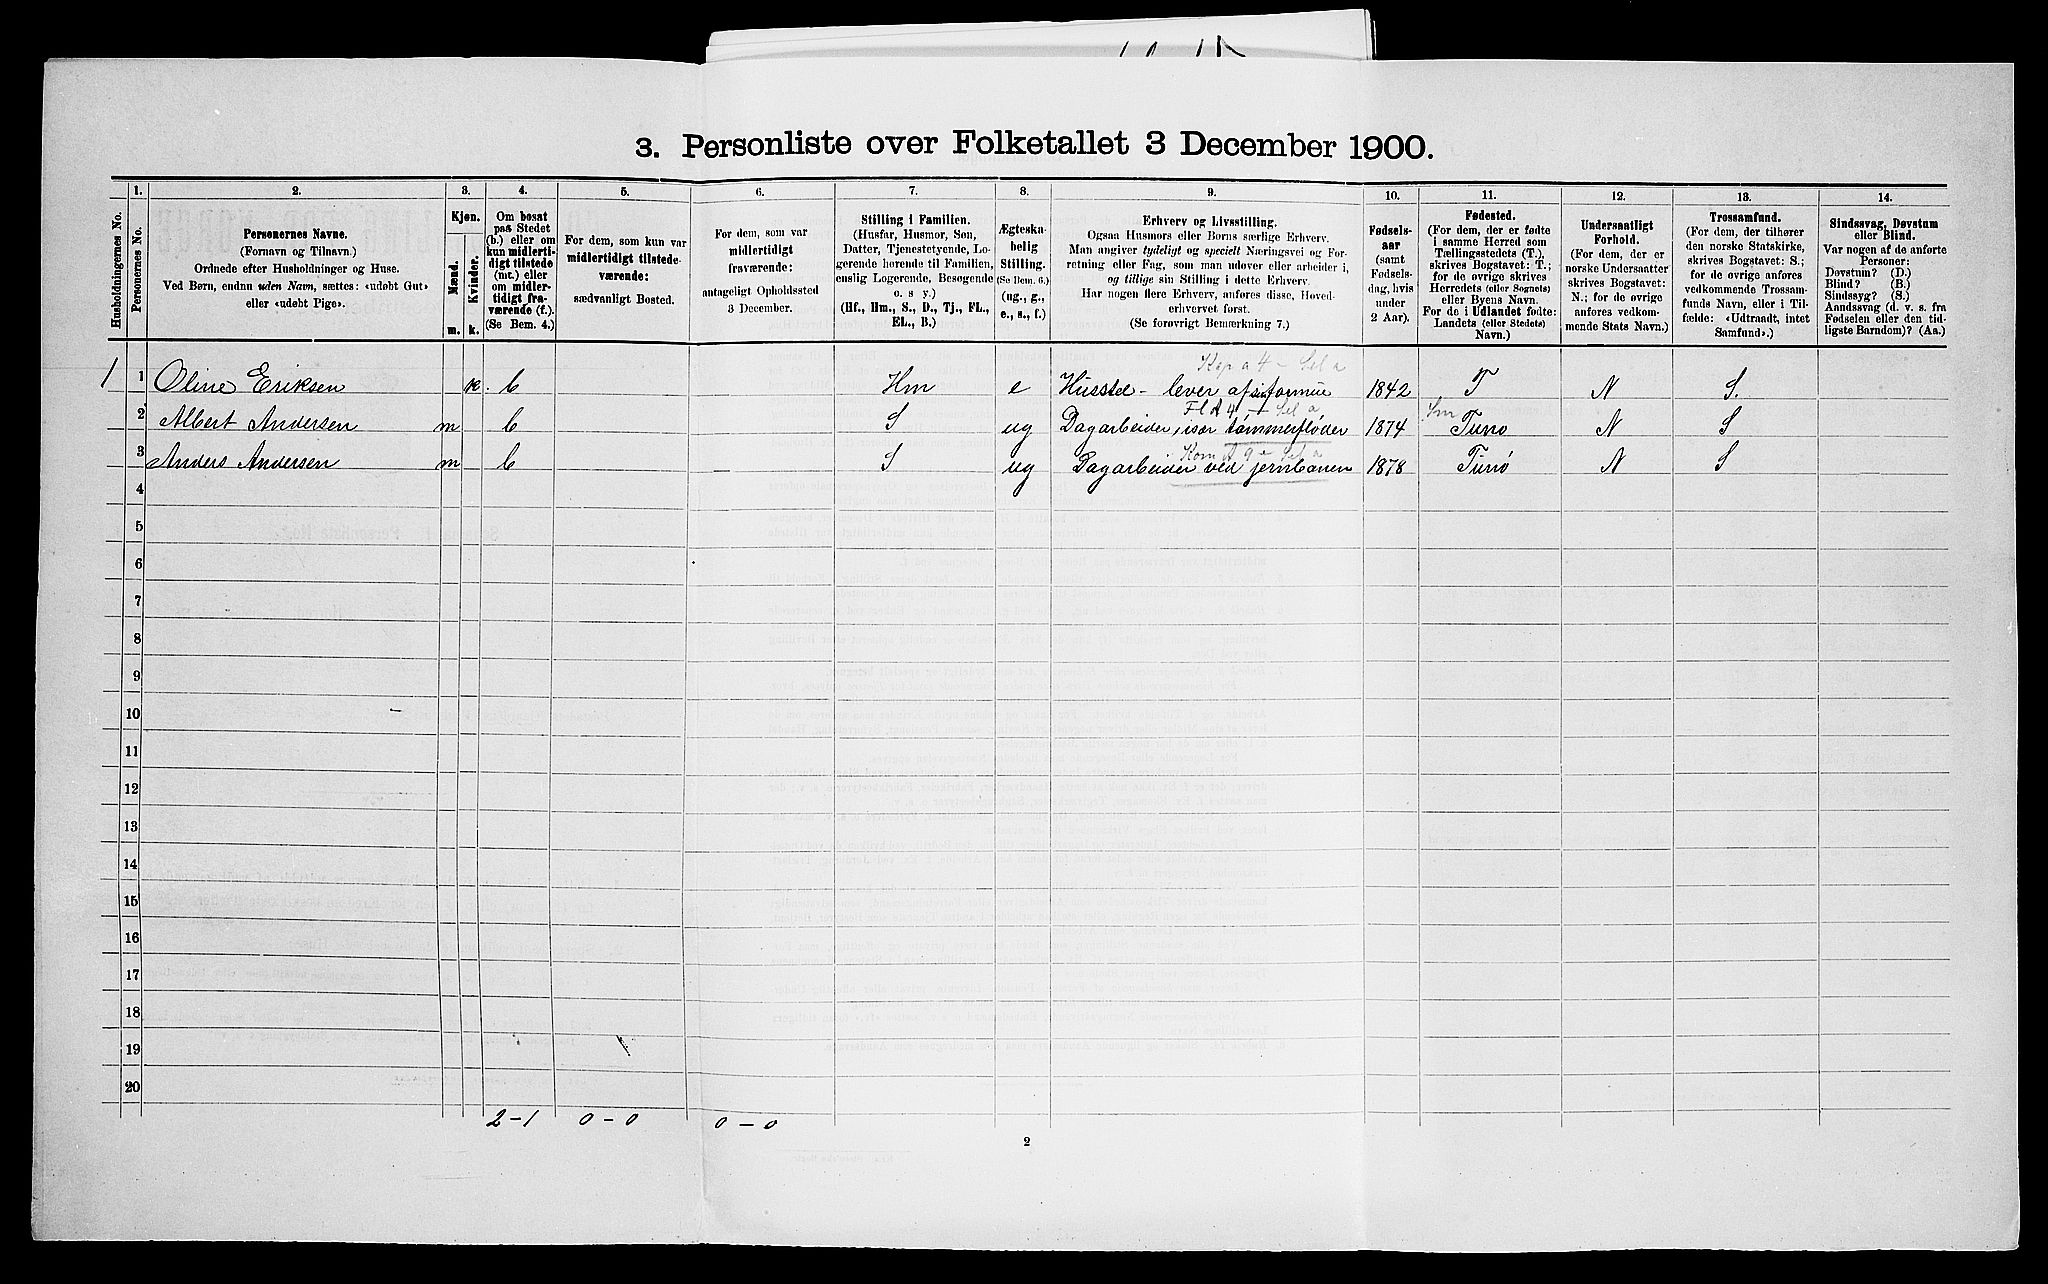 3. Personliste over Folketallet 3 December 1900.
Husholdningernes No.
1.
Personernes No.
2.
Personernes Navne.
(Fornavn og Tilnavn.)
Ordnede efter Husholdninger og Huse.
Ved Børn, endnu uden Navn, sættes: «udøbt Gut»
eller «udøbt Pige».
3.
Kjøn.
Mænd.
Kvinder.
m.
k.
4.
Om bosat
paa Stedet
(b.) eller om
kun midlerti-
digt tilstede
(mt.) eller
om midler-
tidigt fra-
værende (f.).
(Se Bem. 4.)
5.
For dem, som kun var
midlertidigt tilstede-
værende:
sædvanligt Bosted.
6.
For dem, som var
midlertidigt
fraværende:
antageligt Opholdssted
3 December.
7.
Stilling i Familien.
(Husfar, Husmor, Søn,
Datter, Tjenestetyende, Lo-
gerende hørende til Familien,
enslig Logerende, Besøgende
o. s. v.)
(Hf., Hm., S., D., Tj., FL.,
EL., B.)
8.
Ægteska-
belig
Stilling.
(Se Bem. 6.)
(ug., g.,
e., s., f.)
9.
Erhverv og Livsstilling.
Ogsaa Husmors eller Børns særlige Erhverv.
Man angiver tydeligt og specielt Næringsvei og For-
retning eller Fag, som man udøver eller arbeider i,
og tillige sin Stilling i dette Erhverv.
Har nogen flere Erhverv, anføres disse, Hoved-
erhvervet først.
(Se forøvrigt Bemærkning 7.)
10.
Fødsels-
aar
(samt
Fødsels-
dag, hvis
under
2 Aar).
11.
Fødested.
(For dem, der er fødte
i samme Herred som
Tællingsstedets (T.),
skrives Bogstavet: T.;
for de øvrige skrives
Herredets (eller Sognets)
eller Byens Navn.
For de i Udlandet fødte:
Landets (eller Stedets)
Navn.)
12.
Undersaatligt
Forhold.
(For dem, der er
norske Undersaatter
skrives Bogstavet:
N.; for de øvrige
anføres vedkom-
mende Stats Navn.)
13.
Trossamfund.
(For dem, der tilhører
den norske Statskirke,
skrives Bogstavet: S.;
for de øvrige anføres
vedkommende Trossam-
funds Navn, eller i Til-
fælde: «Udtraadt, intet
Samfund».)
14.
Sindssvag, Døvstum
eller Blind.
Var nogen af de anførte
Personer:
Døvstum? (D.)
Blind? (B.)
Sindssyg? (S.)
Aandssvag (d. v. s. fra
Fødselen eller den tid-
ligste Barndom)? (Aa.)
Kap a 4 - Sel a
1 1 Oline Eriksen k. b Hm e Husstel - lever af sin formue 1842 T N S.
Fl A 4 - Sel a
2 Albert Andersen m b S ug Dagarbeider, især tømmerfløder 1874 Sm Tunø N S
Kom A 9 - Sel a
3 Anders Andersen m b S ug Dagarbeider ved jernbanen 1878 Tunø N S
4
5
6
7
8
9
10
11
12
13
14
15
16
17
18
19
20
2-1 0-0 0-0
2